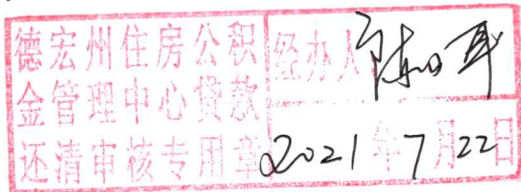 德宏州住房公积
金管理中心贷款
还清审核专用章
经办人
2021年7月22日